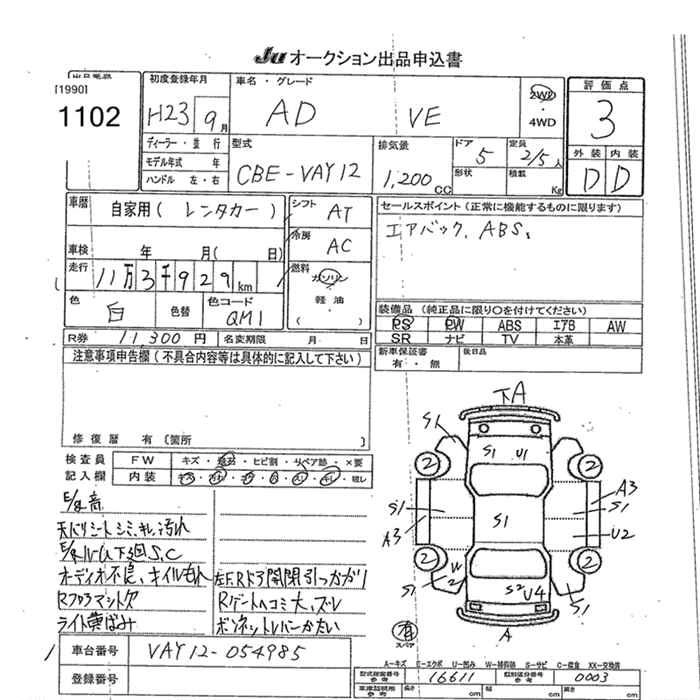 Ju オークション出品申込書
出品番号
[1990]
1102
初度登録年月
H23 9月
ディーラー・並行
モデル年式 年
ハンドル 左・右
車名・グレード
AD VE
2WD
・
4WD
評価点
3
外装 内装
D D
型式
CBE-VAY12
排気量
1,200 cc
ドア
5
形状
定員
2/5人
積載
Kg
車歴
自家用( レンタカー )
車検 年 月( 日)
走行
11万3千929km
色
白
色替
色コード
QM1
シフト
AT
冷房
AC
燃料
ガソリン
軽油
セールスポイント(正常に機能するものに限ります)
エアバック、ABS、
装備品 (純正品に限り○を付けてください)
PS PW ABS エアB AW
SR ナビ TV 本革
新車保証書 後日品
有・無
R券 11,300円 名変期限 月 日
注意事項申告欄(不具合内容等は具体的に記入して下さい)
修復歴 有〔箇所 〕
検査員
記入欄
FW キズ・ ・ヒビ割・リペア跡・×要
内装
E/g音
天バリシートシミ、キレ、汚れ
下廻S,C
オーディオ不良、オイルもれ
左F,Rドア開閉引っかかり
Rフロアマット欠
Rゲートヘコミ大、ズレ
ライト黄ばみ
ボンネットレバーかたい
下A
S1
S1 U1
2 2
S1 A3
S1 S1
A3 U2
2 2
W2
S1 S2 U4 S1
有
スペア
A
A-キズ E-エクボ U-凹み W-補修跡 S-サビ C-腐食 XX-交換済
車台番号
VAY12-054985
登録番号
型式指定番号
参考
16611
類別区分番号
参考
0003
長さ cm cm cm